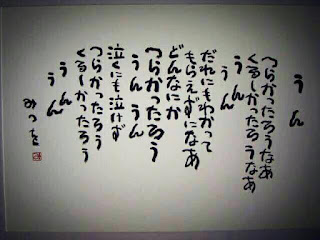 うん
つらかったろうなあ
くるしかったろうなあ
うん
うん
だれにもわかって
もらえずになあ
どんなにか
つらかったろう
うんうん
泣くにも泣けず
つらかったろう
くるしかったろう
うん
うん
みつを